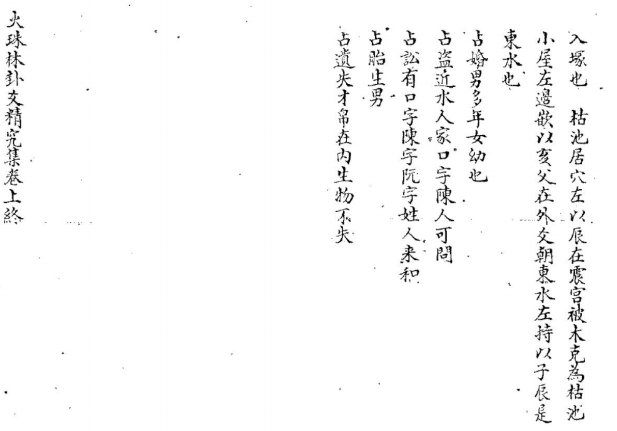 入塚也　枯池居穴左以辰在震宮被木克為枯池
小屋左邉欲以亥父在外爻朝東水左持以子辰是
東水也
占婚男多年女幼也
占盗近水人家口字陳人可問
占訟有口字陳字阮字姓人来和
占胎生男
占遺失才帛在内生物不失
火珠林卦爻精究集卷上終